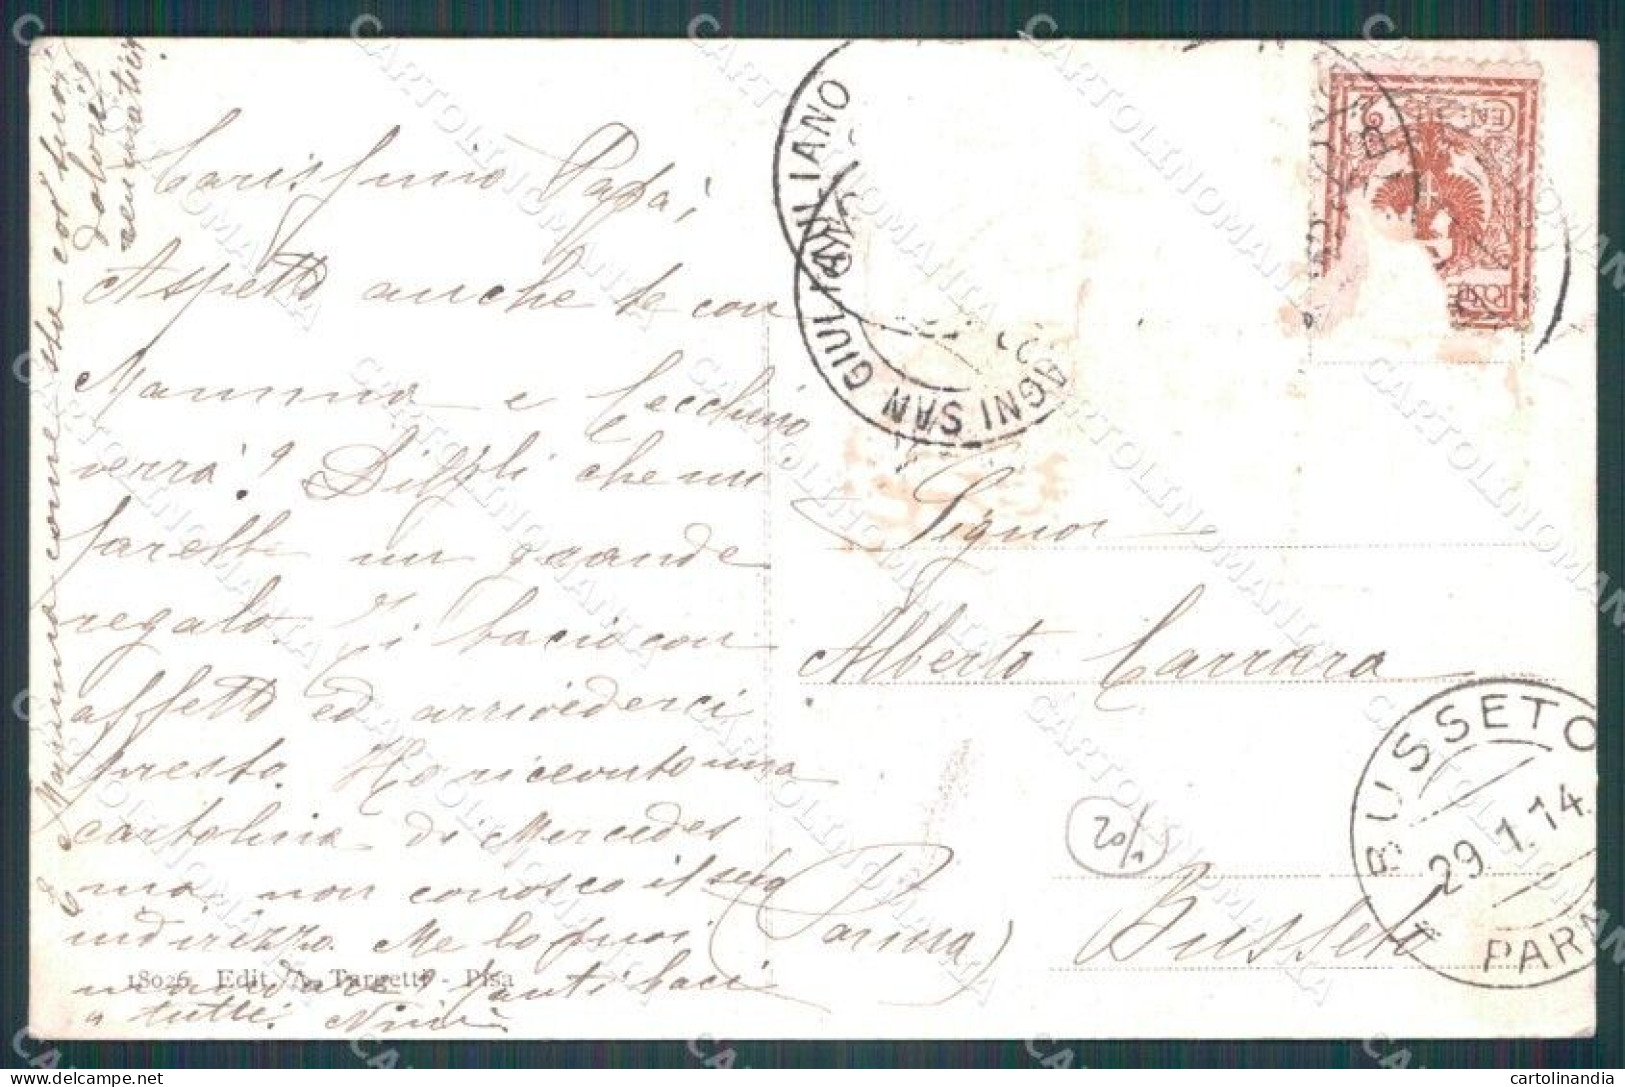 Carissimo Papà,
Aspetto anche te con
Mamma e Cecchino
verrà? Digli che mi
farebbe un grande
regalo. Ti bacio con
affetto ed arrivederci
presto. Ho ricevuto una
cartolina di Mercedes
ma non conosco il suo
indirizzo. Me lo puoi
mandare? Tanti baci
a tutti. Nini
E Mamma come sta coi suoi
dolori
reumatici?
18026 Edit. A. Targetti - Pisa
BAGNI SAN GIULIANO
POSTE
CENT. 2
Signor
Alberto Carrara
20/1
(Parma) Busseto
BUSSETO
29.1.14
PARMA
CARTOLINOMANIA
cartolinandia